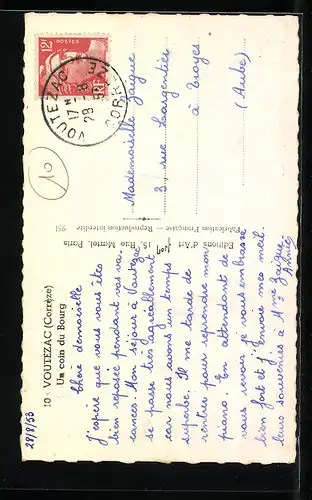 10 - VOUTEZAC (Corrèze)
Un coin du Bourg
29/8/53
Chère demoiselle
J'espère que vous vous êtes
bien reposée pendant vos va-
cances. Mon séjour à Voutezac
se passe très agréablement
car nous avons un temps
superbe. Il me tarde de
rentrer pour reprendre mon
piano. En attendant de
vous revoir je vous embrasse
bien fort et j'envoie mes meil-
leurs souvenirs à Mme Gaigue
Annie
Editions d'Art 15, Rue Martel, Paris
Fabrication Française - Reproduction interdite 951
Mademoiselle Gaigue
3, rue Largentier
à Troyes
(Aube)
12F
POSTES
RF
VOUTEZAC
17H
29-8
CORRÈZE
10